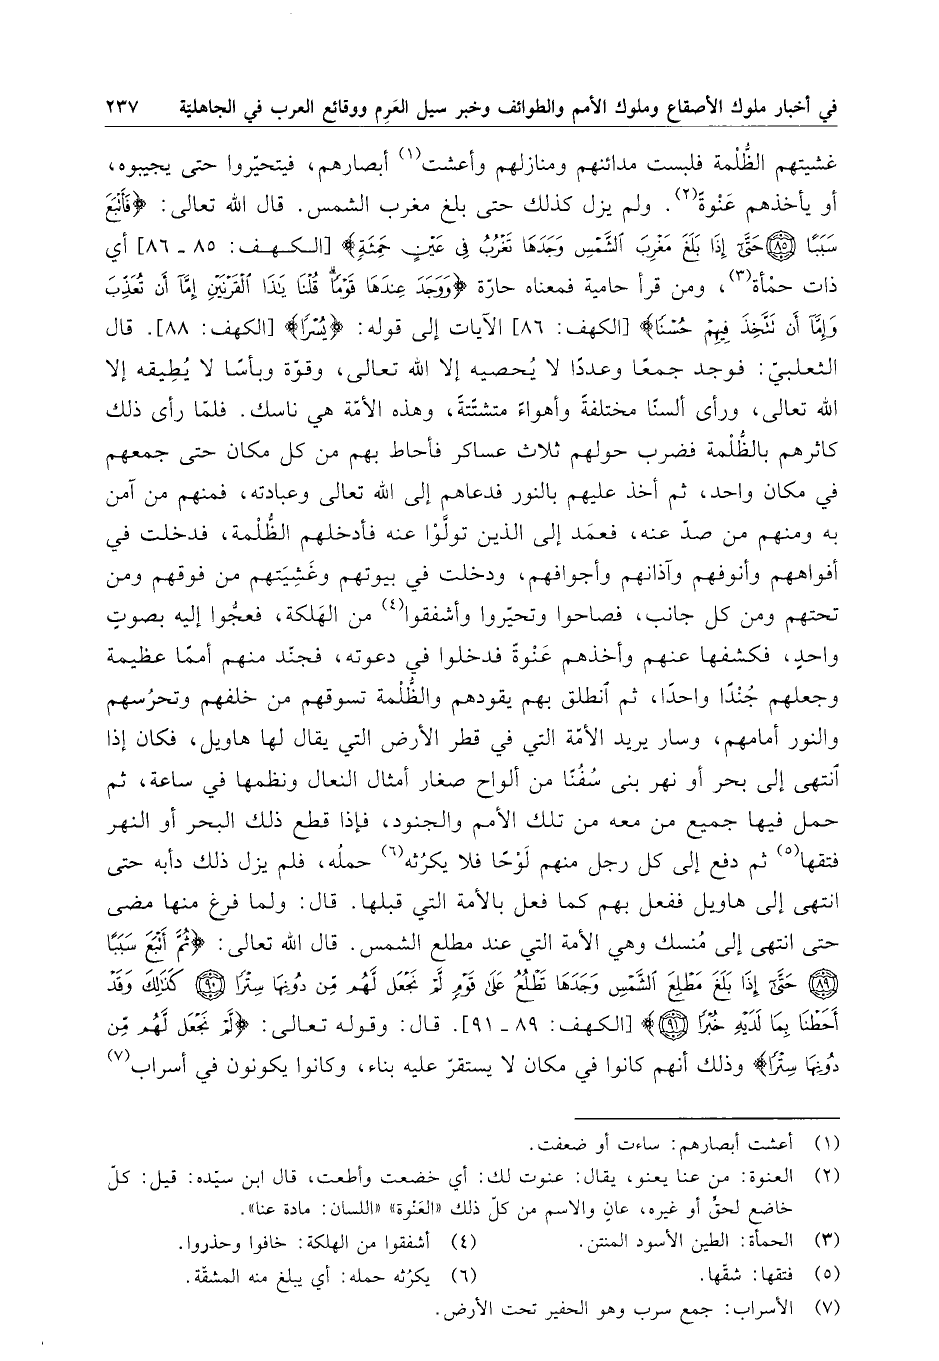 في أخبار ملوك الأصقاع وملوك الأمم والطوائف وخبر سيل العَرِم ووقائع العرب في الجاهليّة ٢٣٧
غشيتهم الظُّلْمة فلبست مدائنهم ومنازلهم وأعشت(١) أبصارهم، فيتحيّروا حتى يجيبوه،
أو يأخذهم عَنْوةً(٢). ولم يزل كذلك حتى بلغ مغرب الشمس. قال الله تعالى: ﴿فَأَتْبَعَ
سَبَبًا ﴿٨٥﴾ حَتَّىٰٓ إِذَا بَلَغَ مَغْرِبَ ٱلشَّمْسِ وَجَدَهَا تَغْرُبُ فِى عَيْنٍ حَمِئَةٍ﴾ [الكهف: ٨٥ ـ ٨٦] أي
ذات حمْأة(٣)، ومن قرأ حامية فمعناه حارّة ﴿وَوَجَدَ عِندَهَا قَوْمًا ۗ قُلْنَا يَٰذَا ٱلْقَرْنَيْنِ إِمَّآ أَن تُعَذِّبَ
وَإِمَّآ أَن تَتَّخِذَ فِيهِمْ حُسْنًا﴾ [الكهف: ٨٦] الآيات إلى قوله: ﴿يُسْرًا﴾ [الكهف: ٨٨]. قال
الثعلبيّ: فوجد جمعًا وعددًا لا يُحصيه إلا الله تعالى، وقوّة وبأسًا لا يُطِيقه إلا
الله تعالى، ورأى ألسنًا مختلفةً وأهواءً متشتّتةً، وهذه الأمّة هي ناسك. فلمّا رأى ذلك
كاثرهم بالظُّلْمة فضرب حولهم ثلاث عساكر فأحاط بهم من كل مكان حتى جمعهم
في مكان واحد، ثم أخذ عليهم بالنور فدعاهم إلى الله تعالى وعبادته، فمنهم من آمن
به ومنهم من صدّ عنه، فعمَد إلى الذين تولَّوْا عنه فأدخلهم الظُّلْمة، فدخلت في
أفواههم وأنوفهم وآذانهم وأجوافهم، ودخلت في بيوتهم وغَشِيَتهم من فوقهم ومن
تحتهم ومن كل جانب، فصاحوا وتحيّروا وأشفقوا(٤) من الهَلكة، فعجُّوا إليه بصوتٍ
واحدٍ، فكشفها عنهم وأخذهم عَنْوةً فدخلوا في دعوته، فجنّد منهم أممًا عظيمة
وجعلهم جُنْدًا واحدًا، ثم ٱنطلق بهم يقودهم والظُّلْمة تسوقهم من خلفهم وتحرُسهم
والنور أمامهم، وسار يريد الأمّة التي في قطر الأرض التي يقال لها هاويل، فكان إذا
ٱنتهى إلى بحر أو نهر بنى سُفُنًا من ألواح صغار أمثال النعال ونظمها في ساعة، ثم
حمل فيها جميع من معه من تلك الأمم والجنود، فإذا قطع ذلك البحر أو النهر
فتقها(٥) ثم دفع إلى كل رجل منهم لَوْحًا فلا يكرُثه(٦) حملُه، فلم يزل ذلك دأبه حتى
انتهى إلى هاويل ففعل بهم كما فعل بالأمة التي قبلها. قال: ولما فرغ منها مضى
حتى انتهى إلى مُنسك وهي الأمة التي عند مطلع الشمس. قال الله تعالى: ﴿ثُمَّ أَتْبَعَ سَبَبًا
﴿٨٩﴾ حَتَّىٰٓ إِذَا بَلَغَ مَطْلِعَ ٱلشَّمْسِ وَجَدَهَا تَطْلُعُ عَلَىٰ قَوْمٍ لَّمْ نَجْعَل لَّهُم مِّن دُونِهَا سِتْرًا ﴿٩٠﴾ كَذَٰلِكَ وَقَدْ
أَحَطْنَا بِمَا لَدَيْهِ خُبْرًا ﴿٩١﴾﴾ [الكهف: ٨٩ ـ ٩١]. قال: وقوله تعالى: ﴿لَّمْ نَجْعَل لَّهُم مِّن
دُونِهَا سِتْرًا﴾ وذلك أنهم كانوا في مكان لا يستقرّ عليه بناء، وكانوا يكونون في أسراب(٧)
(١) أعشت أبصارهم: ساءت أو ضعفت.
(٢) العنوة: من عنا يعنو، يقال: عنوت لك: أي خضعت وأطعت، قال ابن سيّده: قيل: كلّ
خاضع لحقٍّ أو غيره، عانٍ والاسم من كلّ ذلك «العَنْوة» «اللسان: مادة عنا».
(٣) الحمأة: الطين الأسود المنتن. (٤) أشفقوا من الهلكة: خافوا وحذروا.
(٥) فتقها: شقّها. (٦) يكرُثه حمله: أي يبلغ منه المشقّة.
(٧) الأسراب: جمع سرب وهو الحفير تحت الأرض.